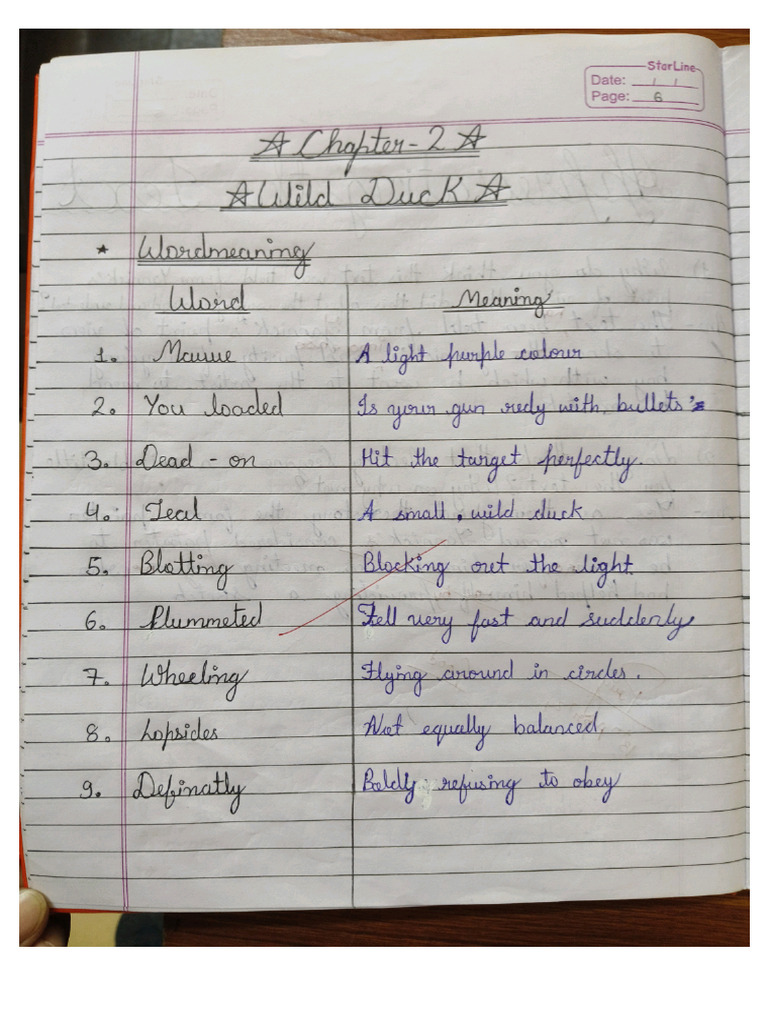 StarLine
Date: / /
Page: 6
☆ Chapter-2 ☆
☆ Wild Duck ☆
* Wordmeaning
Word Meaning
1. Mauve A light purple colour
2. You loaded Is your gun redy with bullets'
3. Dead - on Hit the target perfectly.
4. Teal A small, wild duck
5. Blotting Blocking out the light.
6. Plummeted Fell very fast and suddenly
7. Wheeling Flying around in circles.
8. Lopsides Not equally balanced,
9. Definatly Boldly refusing to obey